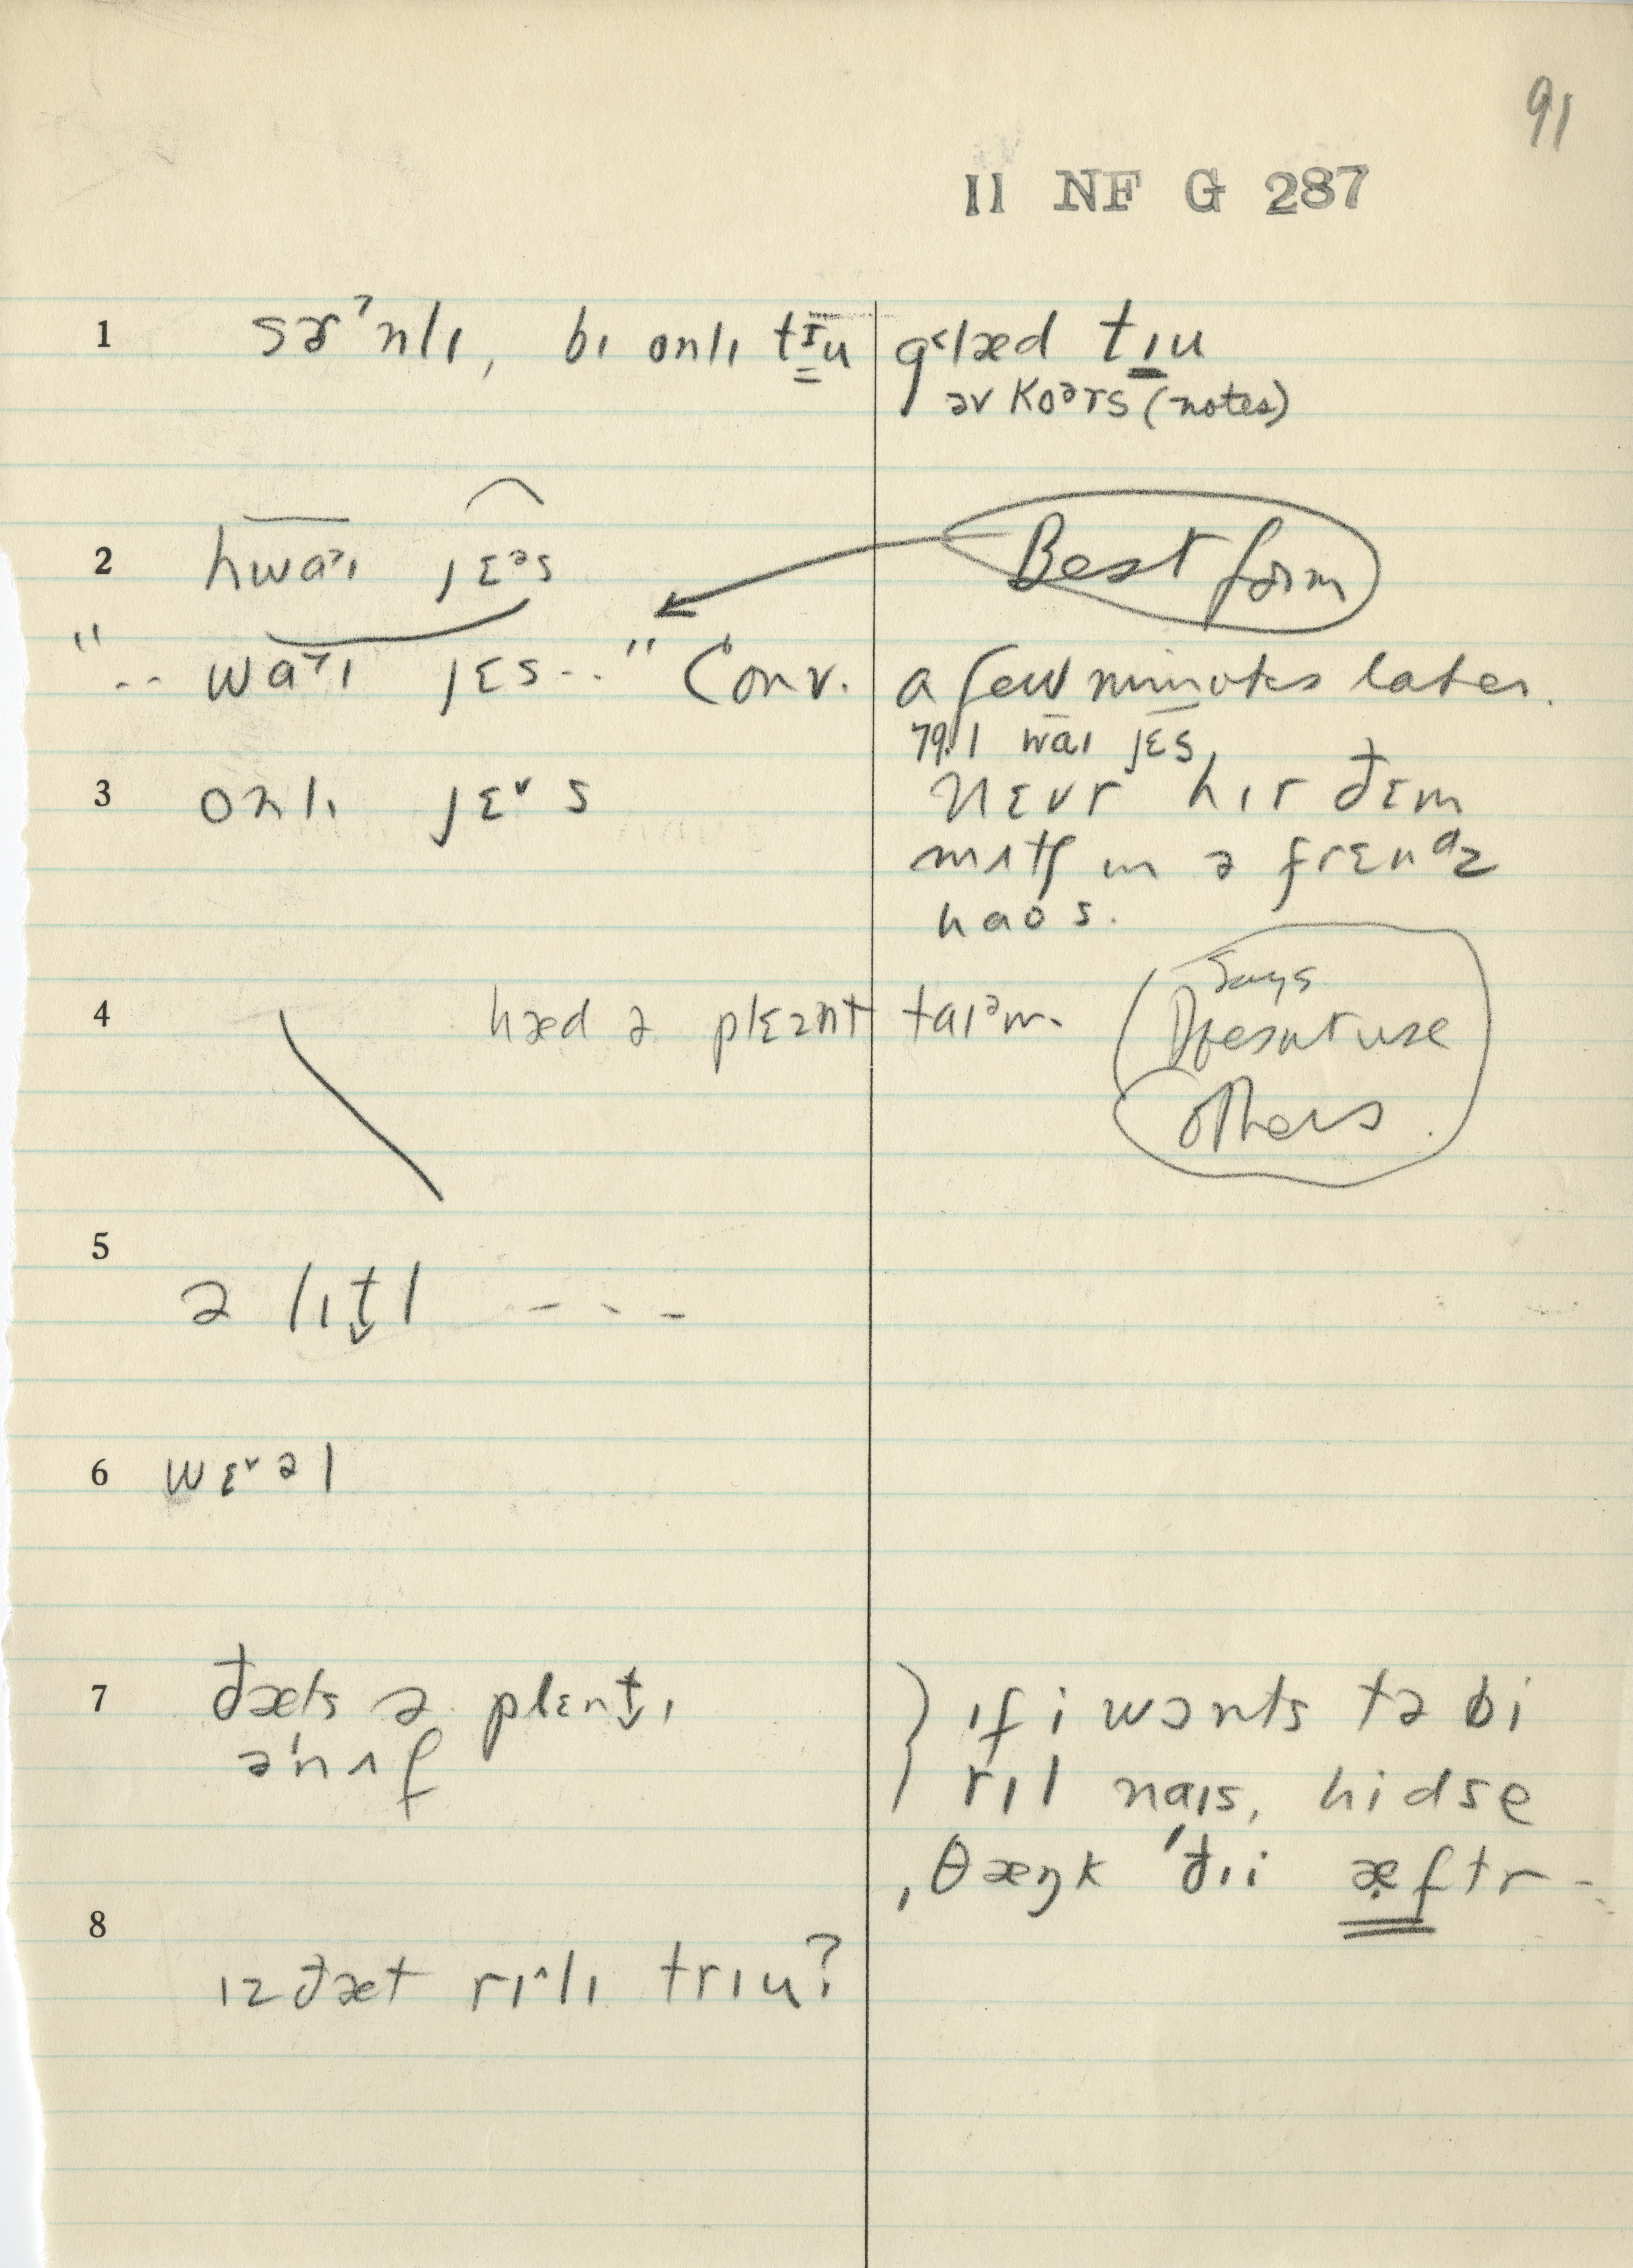 91
II NF G 287
1 sɚˀnlɪ, bɪ onlɪ tɪu g˂læd tɪu
əv Koᵊrs (notes)
2 hwaˀɪ jɛᵊs Best form
".. waˀɪ jɛs.." Conv. a few minutes later.
79.1 waɪ jɛs,
3 onlɪ jɛ˅s nɛvr hɪr đɛm
mʌtʃ ɪn ə frɛnᵈz
haos.
4 hæd ə plɛznt taɪᵊm. Says
Doesnt use
others.
5
ə lɪt̬l - - - -
6 wɛ˅əl
7 đæts ə plɛnt̬ɪ ɪf i wɔnts tə bi
ə'nʌf rɪl naɪs, hidse
ˌθæŋk 'đɪi æftr -
8
ɪz đæt rɪˆlɪ trɪu?